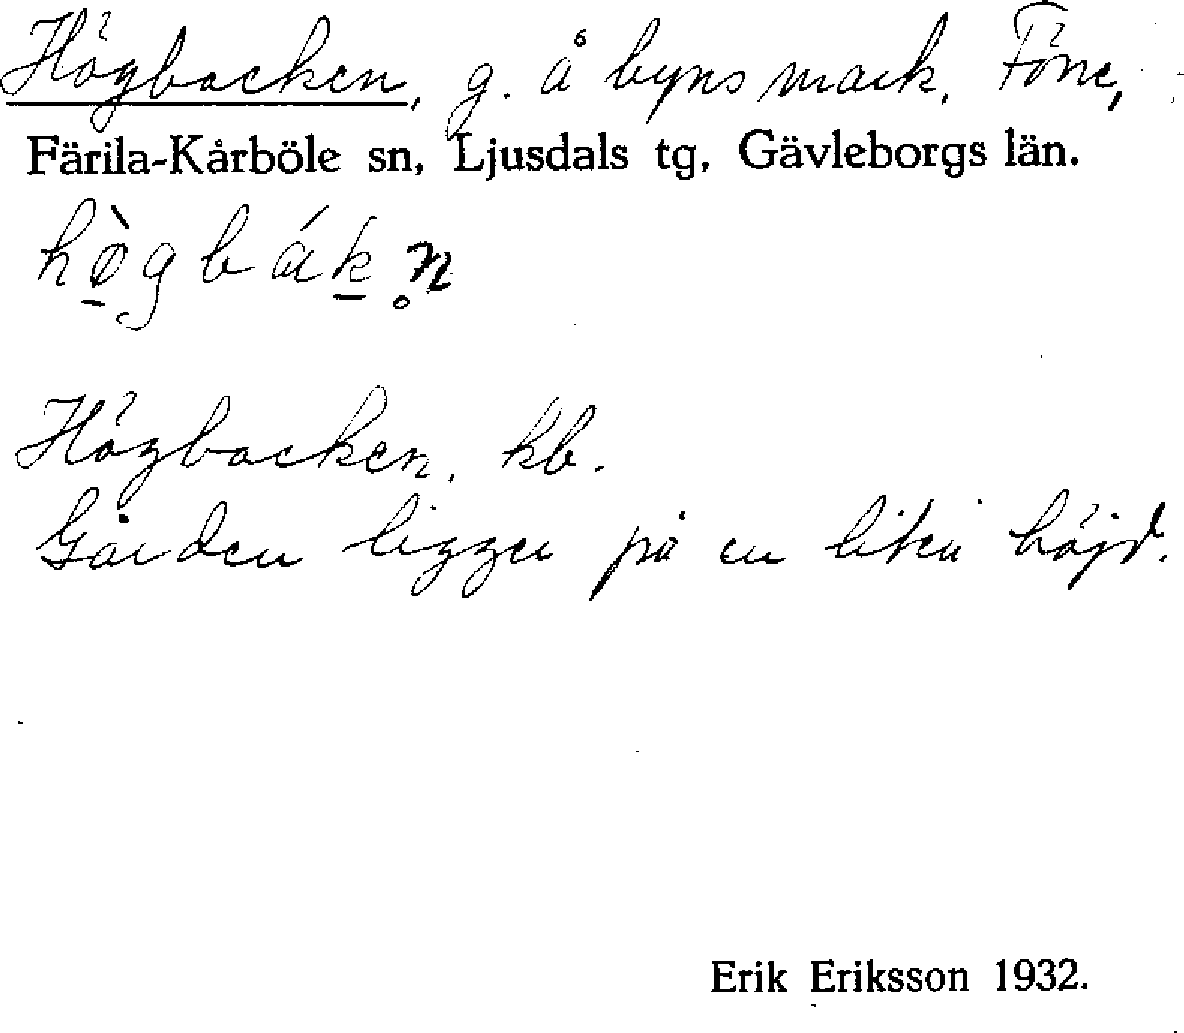 Högbacken, g. å byns mark, Föne,
Färila-Kårböle sn, Ljusdals tg, Gävleborgs län.
hø̠̀gbák̠n̥
Högbacken, kb.
Gården ligger på en liten höjd.
Erik Eriksson 1932.